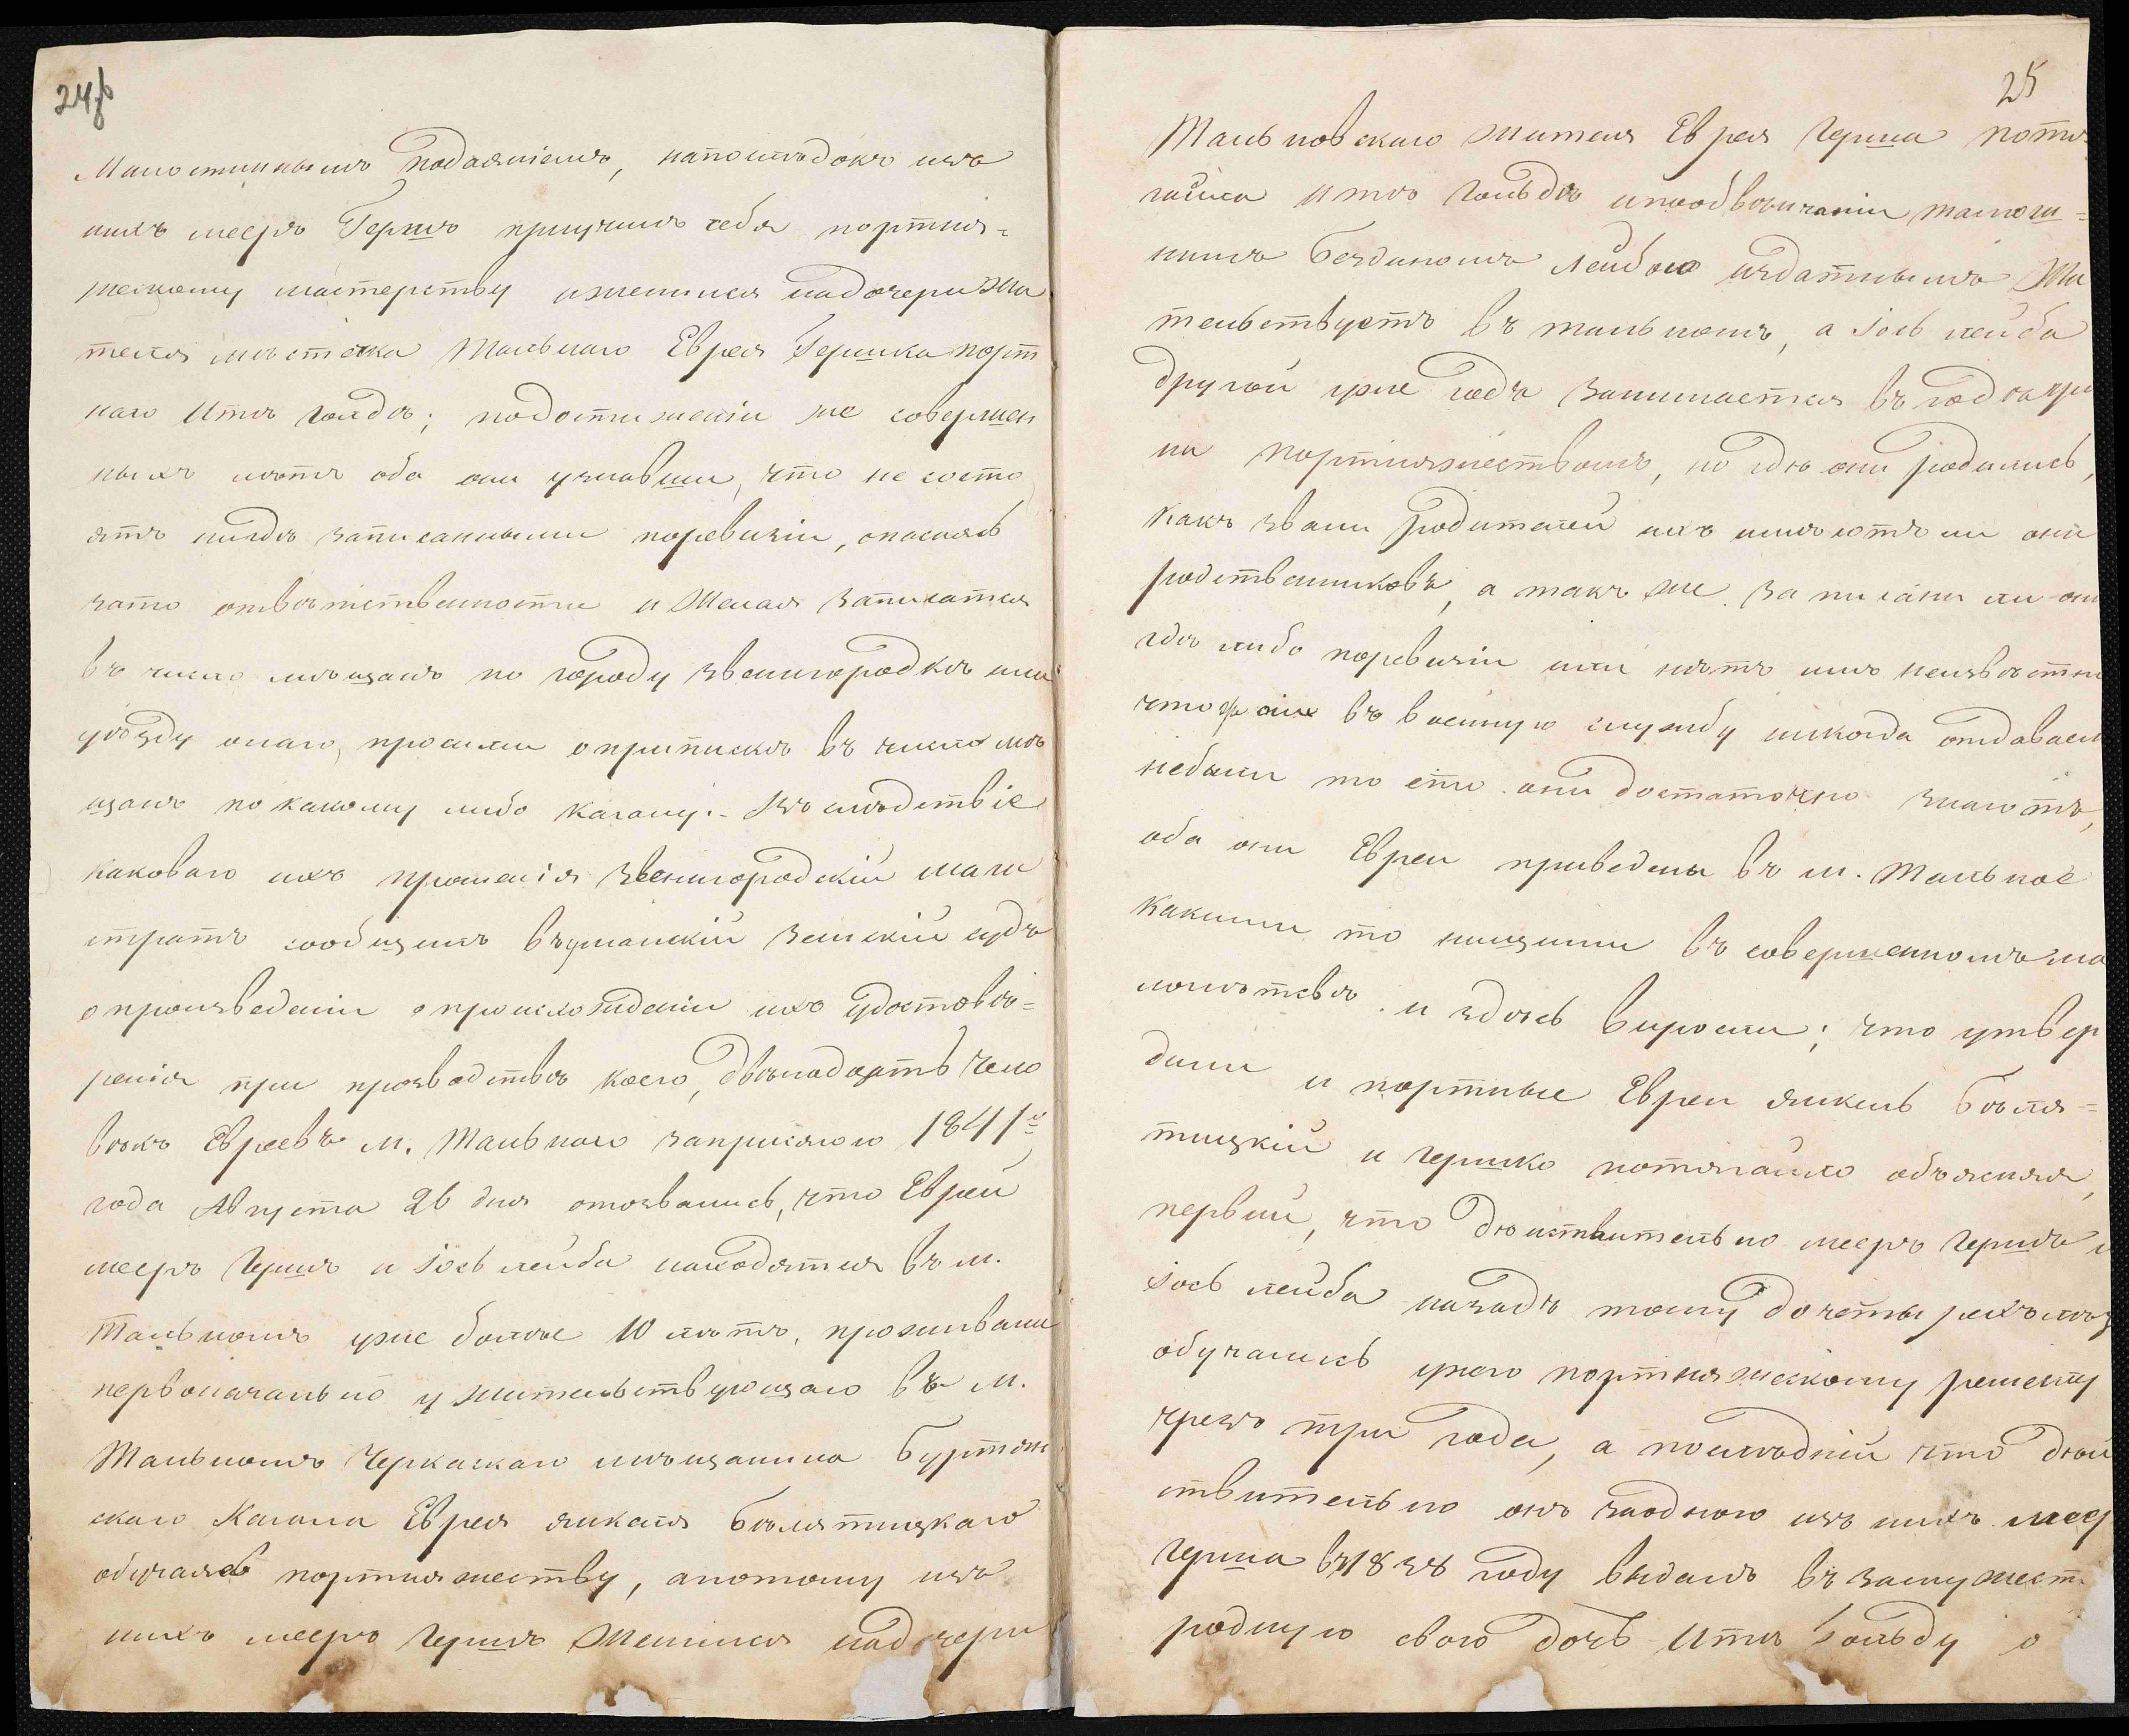 24б
Милостиннымъ подаяніемъ, напослѣдокъ изъ
нихъ мееръ Гершъ приучилъ себя портня=
жескому мастерству и женился на дочери жи
теля мѣстечка Тальнаго Еврея Гершка порт
наго Итѣ голдѣ; по достиженіи же совершен
ныхъ лѣтъ оба они узнавши, что не состо
ятъ нигдѣ записанными по ревизіи, опасаясь
зато отвѣтственности и желая записатся
въ число мѣщанъ по городу звенигородкѣ или
уѣзду онаго, просили о припискѣ въ число мѣ
щанъ по какому либо кагалу.- Въ слѣдствіе
каковаго ихъ прошенія звенигородскій маги
стратъ сообщилъ въ уманскій земскій судъ
о произведеніи о происхожденіи ихъ удостовѣ=
ренія при производствѣ коего, двѣнадцать чело
вѣкъ Евреевъ м. Тальнаго заприсягою 1841го
года Августа 26 дня отозвались, что Евреи
мееръ Гершъ и Іось лейба находятся въ м.
Тальномъ уже болѣе 10 лѣтъ, проживали
первоначально у жительствующаго въ м.
Тальномъ Черкаскаго мѣщанина Буртян
скаго Кагала Еврея янкеля Бѣлятицкаго
обучаясь портняжеству, а потому изъ
нихъ мееръ Гершъ женился на дочери
25
Тальновскаго жителя Еврея Герша потя
гайла Итѣ гольдѣ и по обвѣнчаніи тамош=
нимъ Бездиномъ лейбою издатнымъ жи
тельствуетъ въ тальномъ, а Іось лейба
другой уже годъ занимается въ
портняжествомъ, но гдѣ они родились,
какъ звали родителей ихъ имѣютъ ли они
родственниковъ, а также записаны ли они
гдѣ либо по ревизіи или нѣтъ имъ неизвѣстно
что въ военную службу никогда отдаваем
небыли то ето они достаточно знаютъ,
оба они Евреи приведены въ м. Тальное
какими то нищими въ совершенномъ ма
лолѣтсвѣ и здѣсь выросли; что утвер
дили и портные Евреи янкель Бѣля=
тицкій и Гершко потягайло объясняя,
первый, что дѣйствительно мееръ Гершъ и
Іось лейба назадъ тому до четырехъ лѣтъ
обучались у него портняжескому ремеслу
чрезъ три года, а послѣдній что дѣй
ствительно онъ заодного изъ нихъ меер
Герша въ 1838 году выдалъ въ замужест.
родную свою дочь Итѣ Гольду о